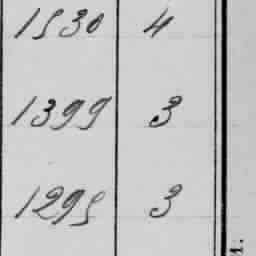 1530 4
1399 3
1295 3
1.